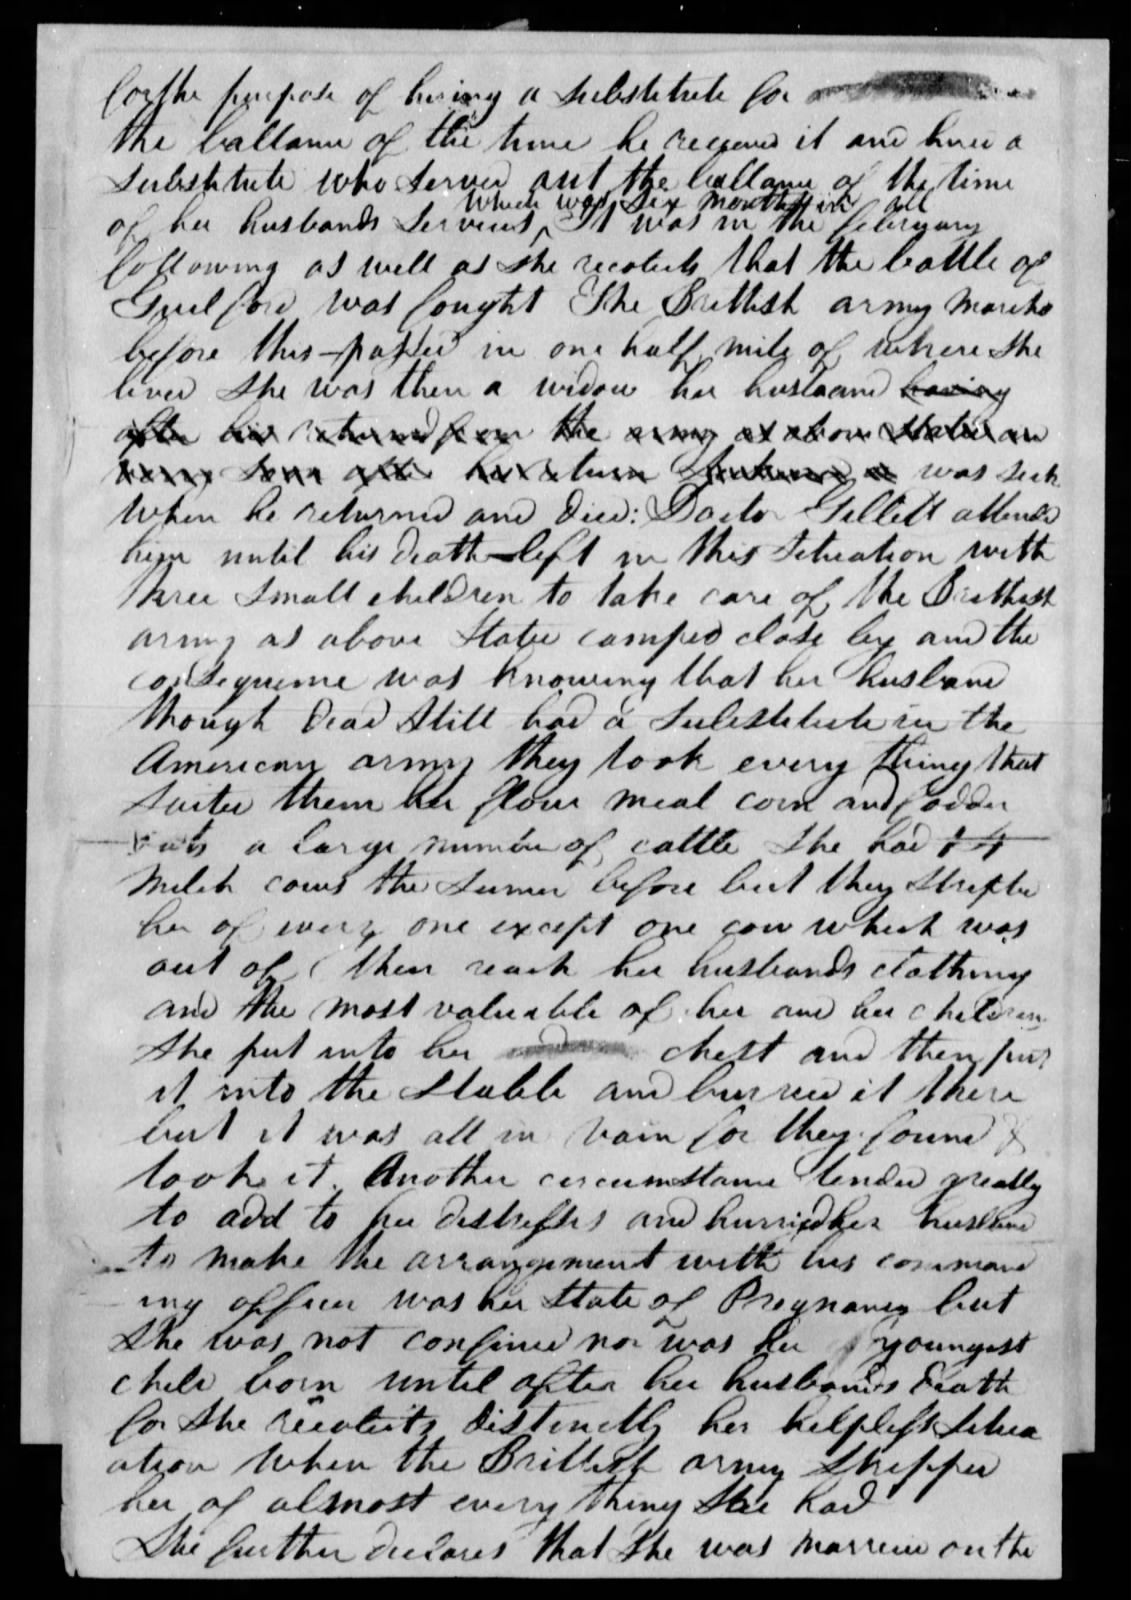 for the purpose of hireing a substitute for
the ballance of the time he received it and hired a
substitute who served out the ballance of the time
which was six months in all
of her husbands services ^ It was in the february
following as well as she recolects that the battle of
Guilford was fought The Brittish army marched
before this passed in one half mile of where she
lived she was then a widow her husband having
after his returned from the army as above stated and
soon after his return was sick
when he returned and died: Doctor Gillett attended
him until his death left in this situation with
three small children to take care of the Brittish
army as above stated camped close by and the
consequence was knowing that her husband
though dead still had a substitute in the
American army they took every thing that
suited them her flour meal corn and fodder
oats a large number of cattle she had 14
milch cows the summer before but they stripted
her of every one except one cow which was
out of their reach her husbands clothing
and the most valuable of her and her children
she put into her chest and then put
it into the stable and burried it there
but it was all in vain for they found &
took it. Another circumstance tended greatly
to add to her distresses and hurried her husband
to make the arrangement with his command
ing officer was her state of Pregnancy but
she was not confined nor was her youngest
child born until after her husbands death
for she recolects distinctly her helpless situa
ation when the Brittish army stripped
her of almost every thing she had
She further declares that she was married on the